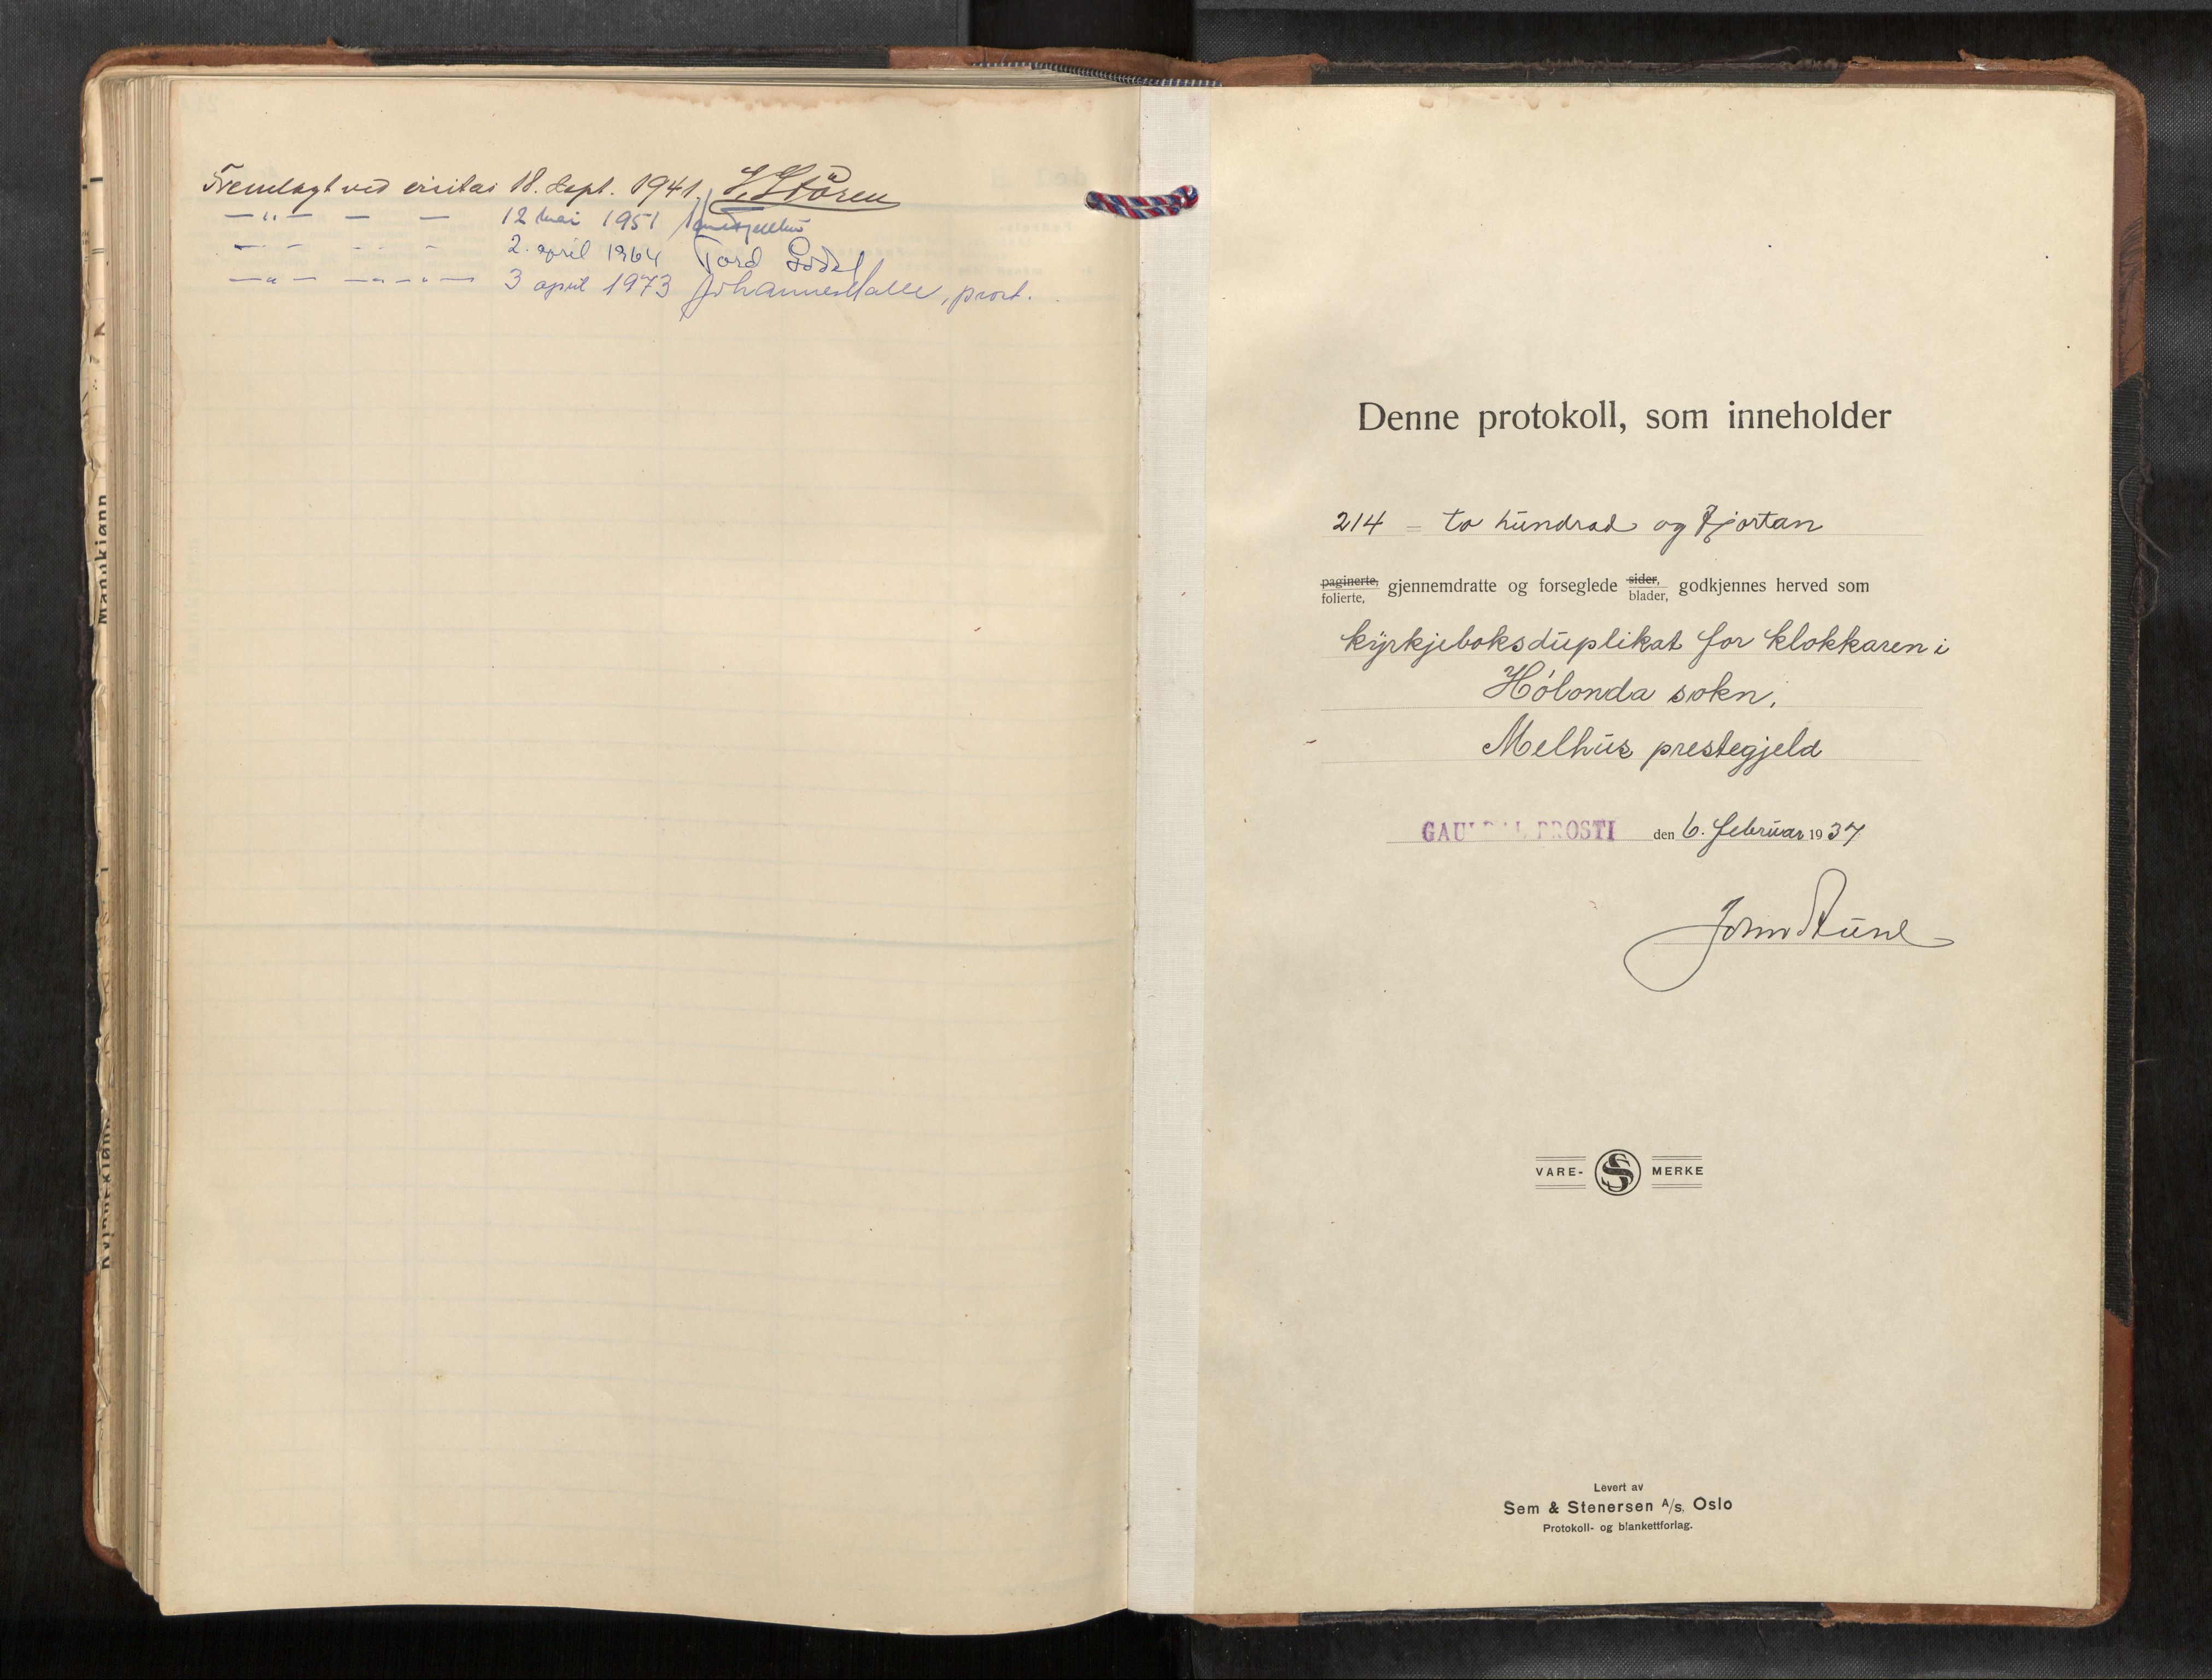 Fremlagt ved visitas 18. sept. 1941. J. Støren
— " — — — 12 mai 1951
— - - - - 2. april 1964 Tord Godal
— " — — " — " — 3 april 1973 Johannes Dalle, prost.
Mannkjønn
Kvinnekjønn
Denne protokoll, som inneholder
214 = to hundrad og fjortan
paginerte,
folierte, gjennemdratte og forseglede sider,
blader, godkjennes herved som
kyrkjeboksduplikat for klokkaren i
Hólonda sokn,
Melhus prestegjeld
GAULDAL PROSTI den 6. februar 1937
John Aune
VARE- S MERKE
Levert av
Sem & Stenersen A/s, Oslo
Protokoll- og blankettforlag.